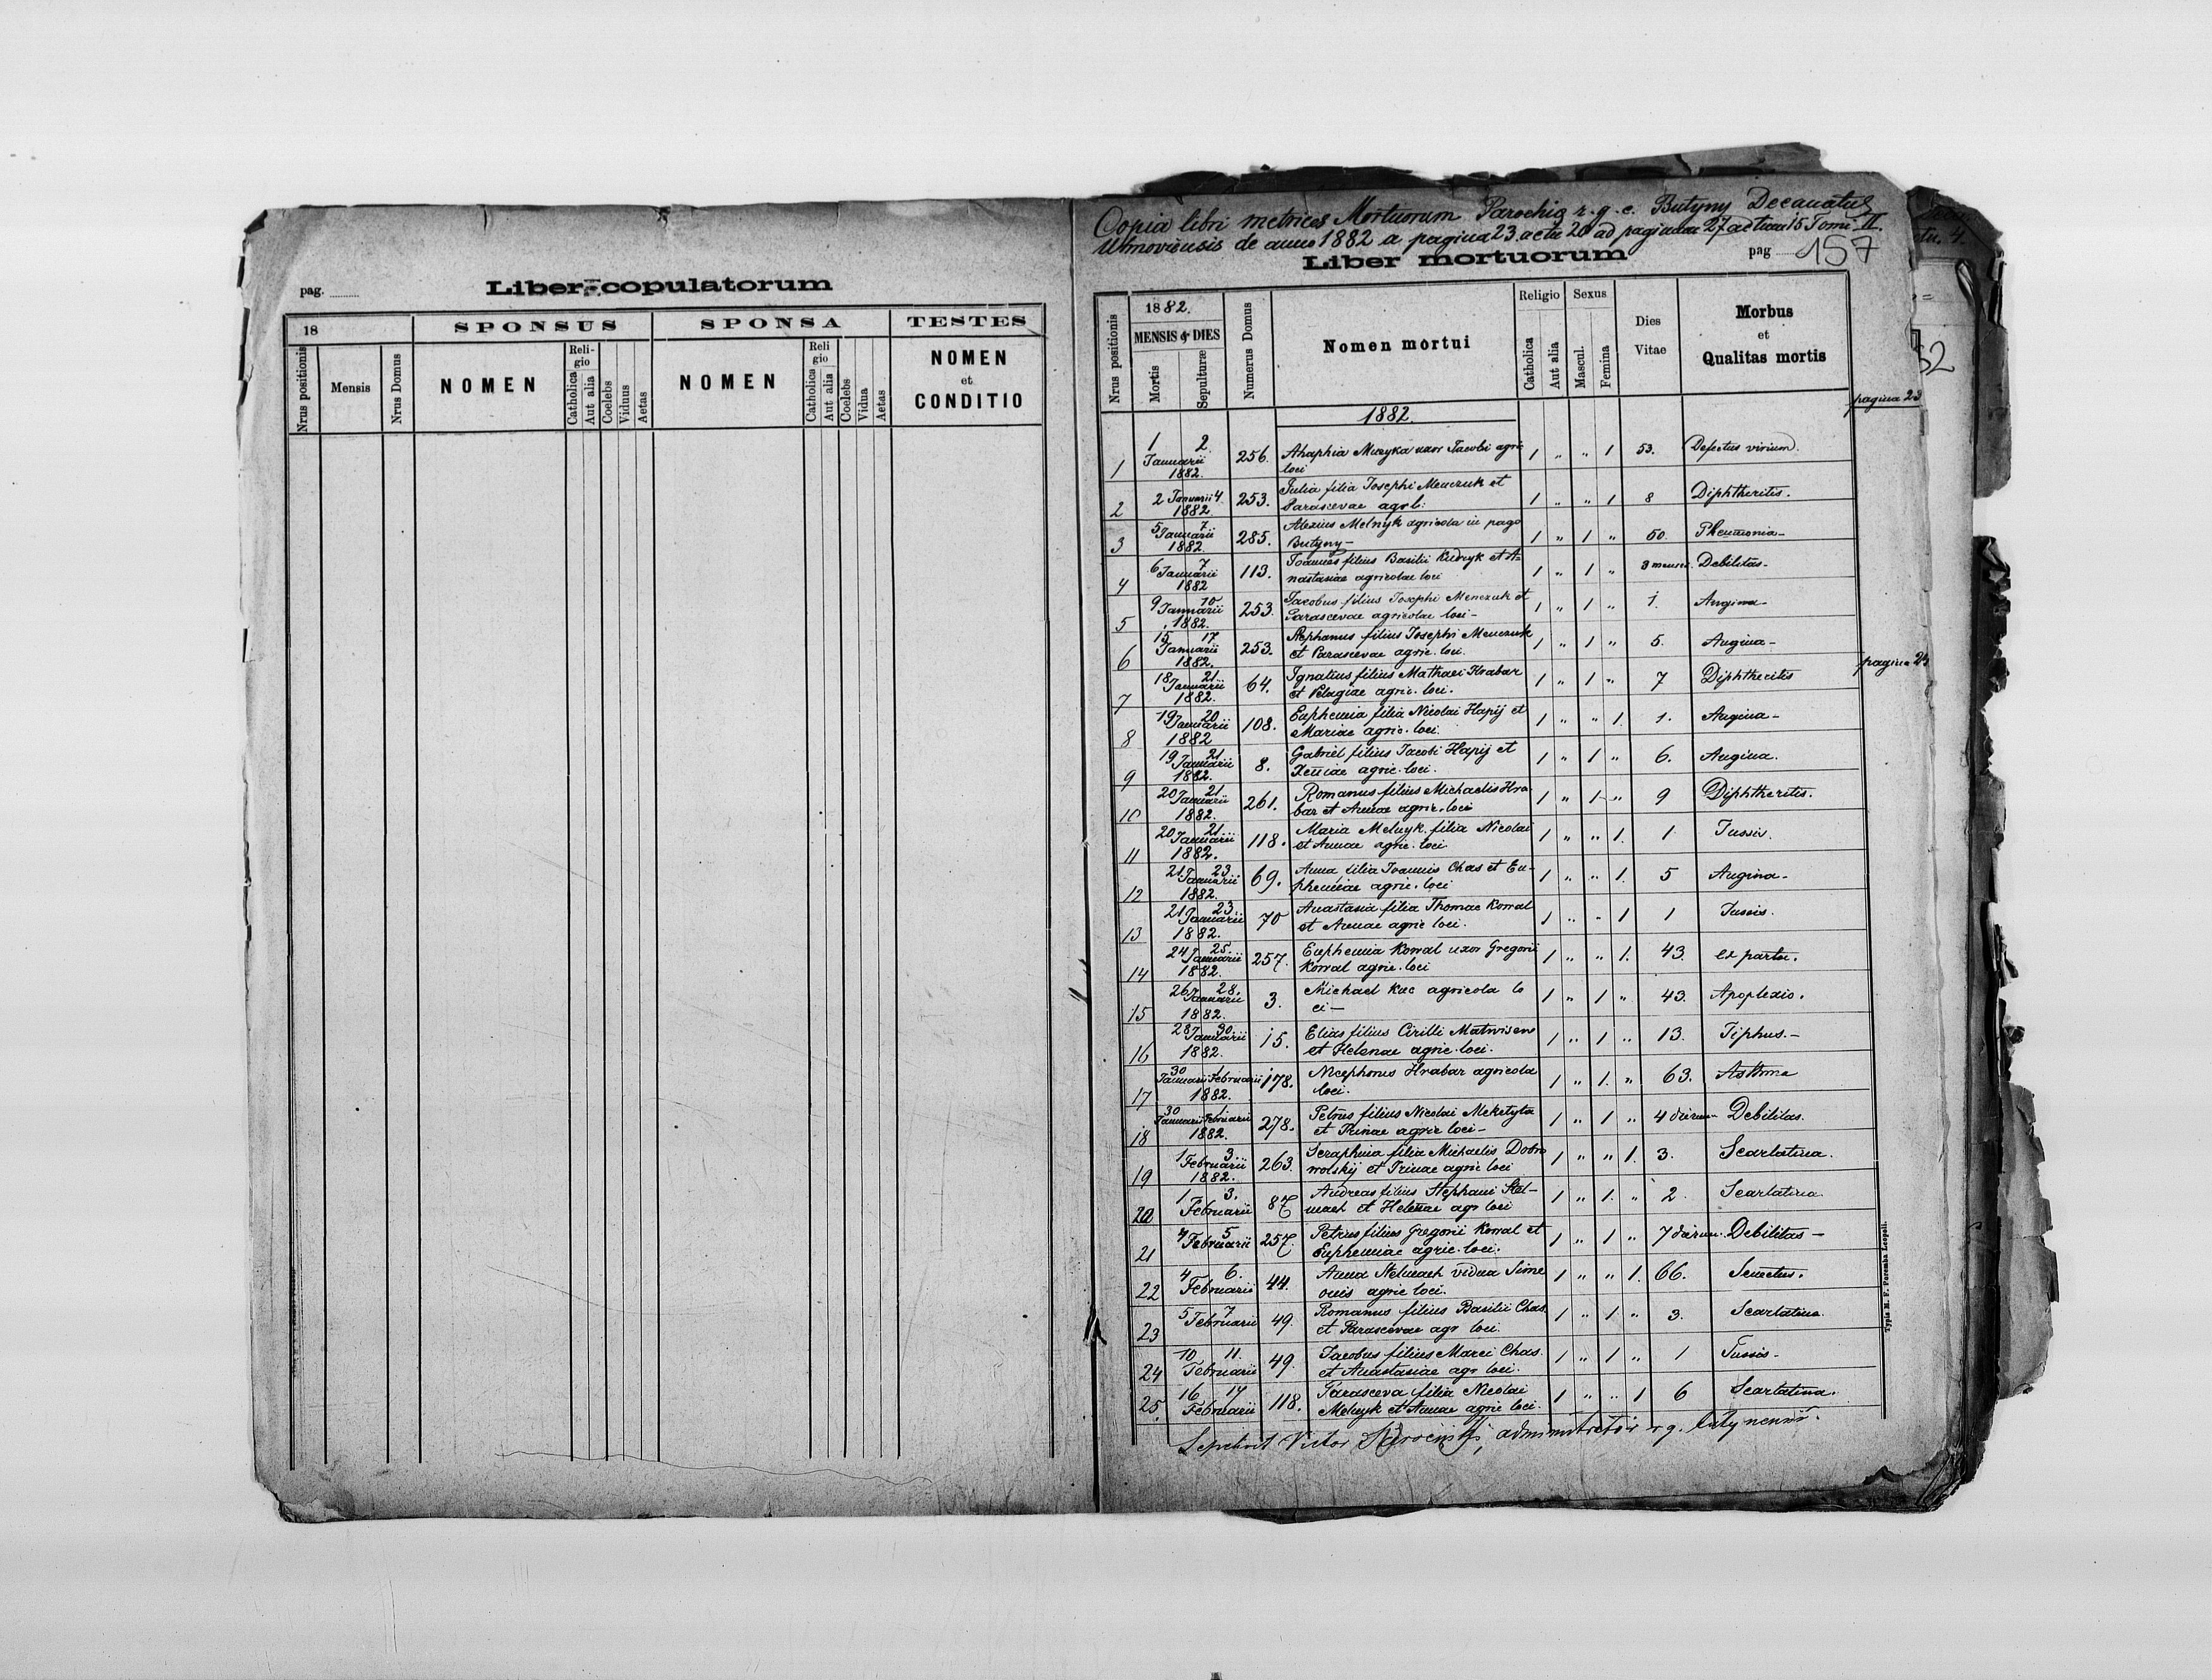 pag.
Liber copulatorum
18
SPONSUS
SPONSA
TESTES
Nrus positionis
Mensis
Nrus Domus
NOMEN
Reli-
gio
Catholica
Aut alia
Coelebs
Viduus
Aetas
NOMEN
Reli
gio
Catholica
Aut alia
Coelebs
Vidua
Aetas
NOMEN
et
CONDITIO
Copia libri metrices Mortuorum Parochię r. g. c. Butyny Decanatus
Uhnoviensis de anno 1882 a pagina 23 actu 20 ad paginam 27 actum 15 Tomi II.
Liber mortuorum
pag 157
Nrus positionis
1882.
MENSIS & DIES
Mortis
Sepulturæ
Numerus Domus
Nomen mortui
Religio
Catholica
Aut alia
Sexus
Mascul.
Femina
Dies
Vitae
Morbus
et
Qualitas mortis
pagina 23
1882.
1 1 2 Januarii 1882. 256. Ahaphia Muzyka uxor Jacobi agric. 1 " " 1 53. Defectus virium.
loci
2 2 Januarii 4 1882. 253. Julia filia Josephi Menczuk et 1 " " 1 8 Diphtheritis.
Parascevae agr. l:
3 5 Januarii 7 1882. 285. Alexius Melnyk agricola in pago 1 " 1 " 50. Pheumonia-
Butyny-
4 6 Januarii 7 1882 113. Joannes filius Basilii Kudryk et A= 1 " 1 " 3 menses. Debilitas-
nastasiae agricolae loci
5 9 Januarii 10 1882. 253. Jacobus filius Josephi Menczuk et 1 " 1 " 1. Angina-
Parascevae agricolae loci-
6 15 Januarii 17 1882. 253. Stephanus filius Josephi Menczuk 1 " 1 " 5. Angina-
et Parascevae agric. loci.
pagina 24
7 18 Januarii 21 1882. 64. Ignatius filius Mathaei Hrabar 1 " 1 " 7 Diphtheritis
et Pelagiae agric. loci.
8 19 Januarii 20 1882 108. Euphemia filia Nicolai Hapij et 1 " " 1. 1. Angina-
Mariae agric. loci.
9 19 Januarii 21 1882. 8. Gabriel filius Jacobi Hapij et 1 " 1 " 6. Angina.
Xeniae agric. loci.
10 20 Januarii 21 1882. 261. Romanus filius Michaelis Hra- 1 " 1 " 9 Diphtheritis.
bar et Annae agric. loci
11 20 Januarii 21. 1882. 118. Maria Melnyk filia Nicolai 1 " " 1. 1. Tussis.
et Annae agric. loci.
12 21 Januarii 23 1882. 69. Anna filia Joannis Chas et Eu- 1 " " 1. 5 Angina-
phemiae agric. loci
13 21 Januarii 23. 1882. 70 Anastasia filia Thomae Kowal 1 " " 1 1 Tussis.
et Annae agric loci.
14 24 Januarii 25. 1882. 257. Euphemia Kowal uxor Gregorii 1 " " 1. 43. ex partu.
Kowal agric. loci
15 26 Januarii 28. 1882. 3. Michael Kuc agricola lo 1 " 1 " 43. Apoplexis.
ci-
16 28 Januarii 30. 1882. 15. Elias filius Cirilli 1 " 1 " 13. Tiphus.-
et Helenae agric. loci.
17 30 Januarii 1 Februarii 1882. 178. Nicephorus Hrabar agricola 1 " 1. " 63. Asthma
loci.
18 30 Januarii 1 Februarii 1882. 278. Petrus filius Nicolai Meketyta 1 " 1 " 4 dierum- Debilitas.
et Irinae agric loci-
19 1 Februarii 3. 1882. 263. Seraphina filia Michaelis Dobro 1 " " 1. 3. Scarlatina.
wolskij et Irinae agric loci
20 1 3. Februarii 87 Andreas filius Stephani Stel- 1 " 1. " 2. Scarlatina
mach et Helenae agr loci
21 4 5 Februarii 257. Petrus filius Gregorii Kowal et 1 " 1 " 7 dierum. Debilitas-
Euphemiae agric. loci.
22 4 6. Februarii 44. Anna Stelmach vidua Sime 1 " " 1. 66. Senectus.
onis agric loci.
23 5 7 Februarii 49. Romanus filius Basilii Chas. 1 " 1 " 3. Scarlatina.
et Parascevae agr loci.
24 10 11. Februarii 49. Jacobus filius Marci Chas. 1 " 1 " 1 Tussis-
et Anastasiae agr loci.
25. 16 17 Februarii 118. Parasceva filia Nicolai 1 " " 1 6 Scarlatina.
Melnyk et Annae agric loci.
Sepelivit Victor administrator r. g. butynensis.
Typis M. F. Poremba Leopoli.